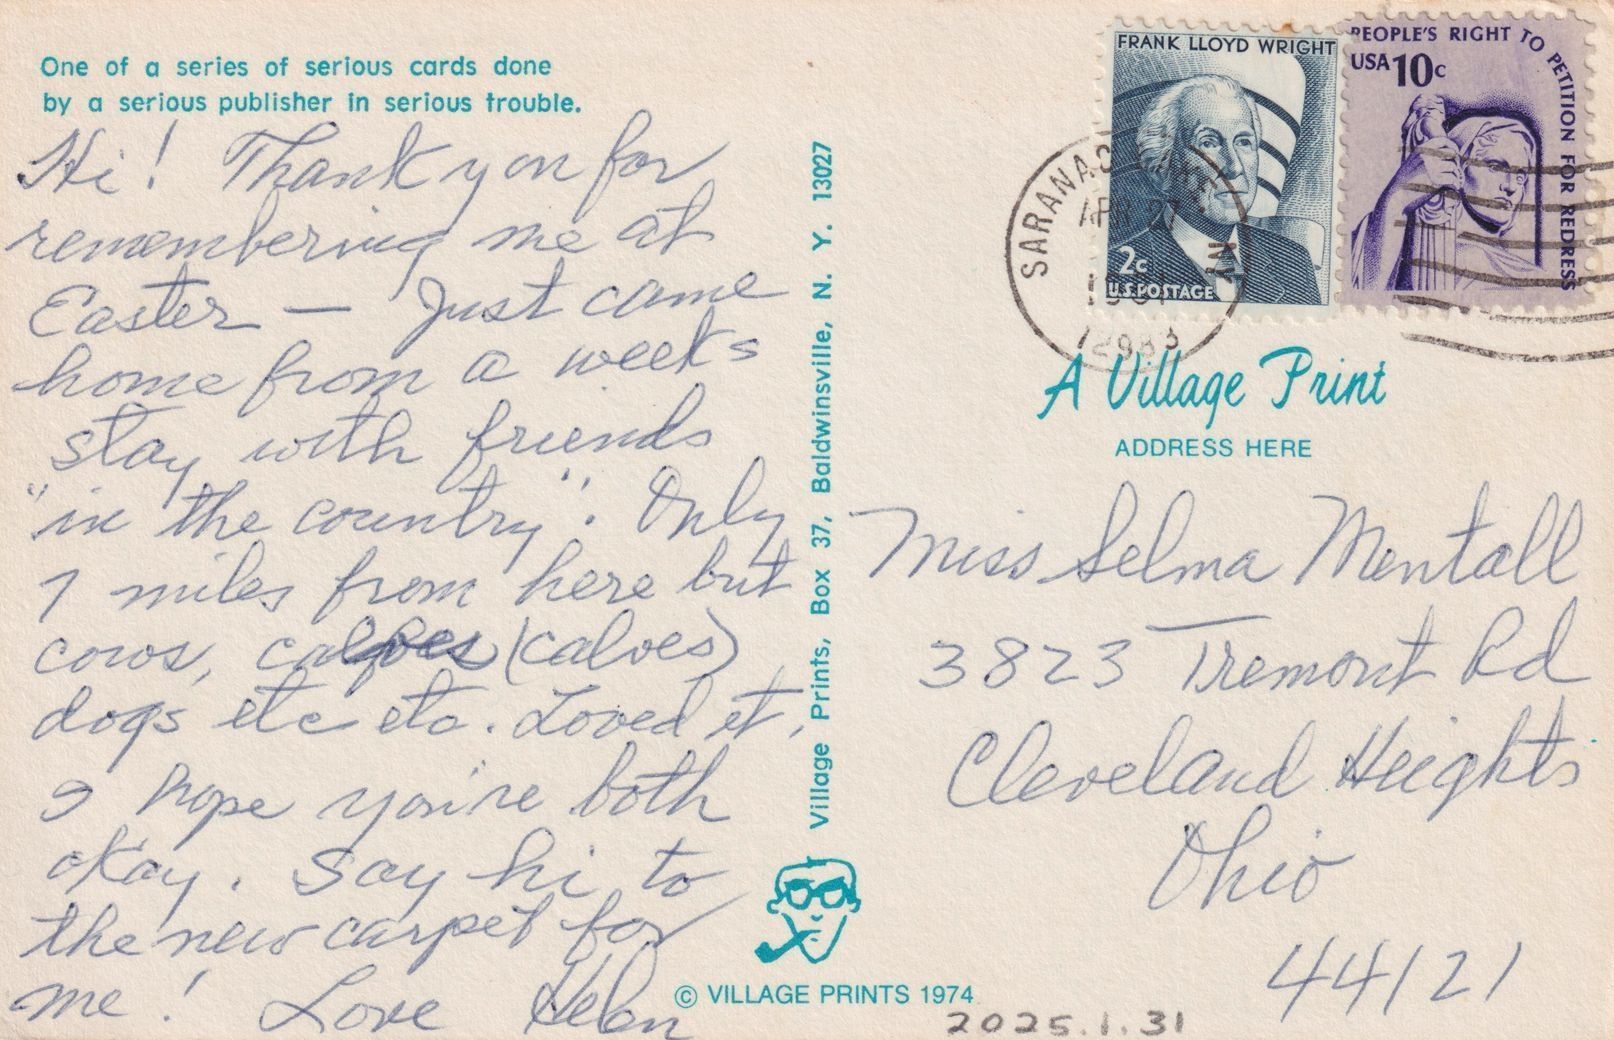 One of a series of serious cards done
by a serious publisher in serious trouble.
Hi! Thank you for
remembering me at
Easter — Just came
home from a week's
stay with friends
"in the country". Only
7 miles from here but
cows, (calves)
dogs etc etc. Loved it.
I hope you're both
okay. Say hi to
the new carpet for
me! Love Helen
Village Prints, Box 37, Baldwinsville, N. Y. 13027
© VILLAGE PRINTS 1974
FRANK LLOYD WRIGHT
2c
U.S. POSTAGE
PEOPLE'S RIGHT TO PETITION FOR REDRESS
USA 10c
SARANAC
NY
APR 27
12983
A Village Print
ADDRESS HERE
Miss Selma Mentall
3823 Tremont Rd
Cleveland Heights
Ohio
44121
2025.1.31